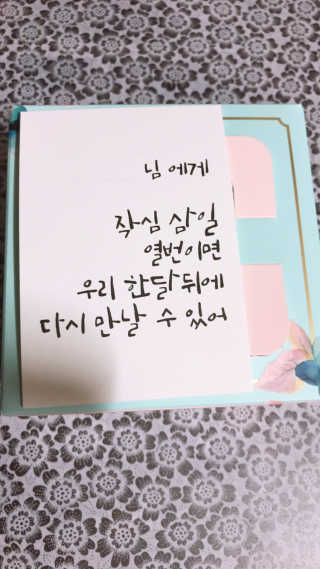 님 에게
작심 삼일
열번이면
우리 한달뒤에
다시 만날 수 있어